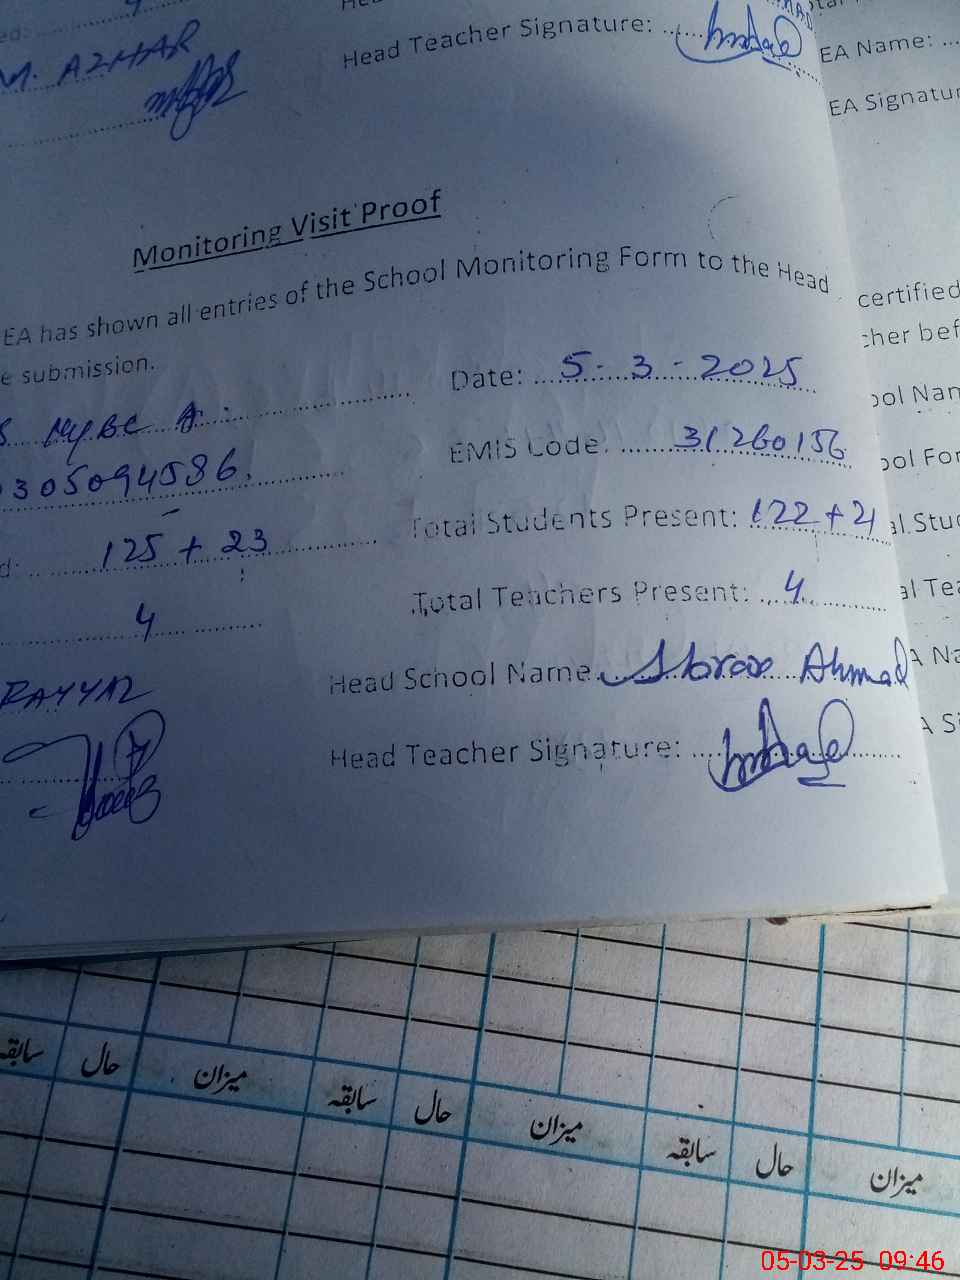 Head Teacher Signature:
M. AZHAR
EA Name: ...
EA Signatur
Monitoring Visit Proof
EA has shown all entries of the School Monitoring Form to the Head
e submission.
Date: 5-3-2025
EMIS Code: 31260156
0305094586
125 + 23
Total Students Present: 122 + 21
4
Total Teachers Present: 4
RAYYAZ
Head School Name Abrar Ahmad
Head Teacher Signature:
certified
cher bef
ool Nam
ool For
al Stud
al Tea
A Na
A Si
سابقہ حال میزان سابقہ حال میزان سابقہ حال میزان
05-03-25 09:46